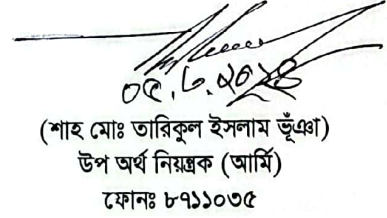 ০৫.৬.২০২৪
(শাহ মোঃ তারিকুল ইসলাম ভূঁঞা)
উপ অর্থ নিয়ন্ত্রক (আর্মি)
ফোনঃ ৮৭১১০৩৫